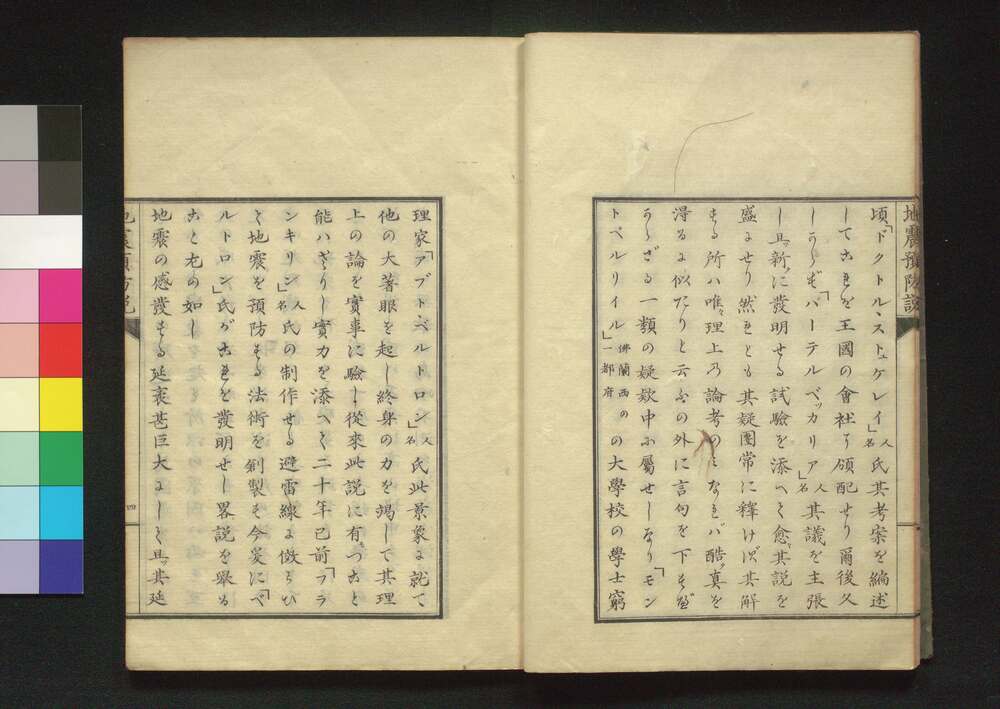 地震預防説
頃「ドクトル、ストュケレイ」人名氏其考案を編述
してこれを王國の會社に頒配せり爾後久
しからず「パーテルベッカリア」人名其議を主張
し且新に發明せる試驗を添へて愈其説を
盛にせり然れとも其疑團常に釋けず其解
する所ハ唯々理上の論考のミなれバ酷真を
得るに似たりと云ふの外に言句を下すべ
からざる一類の疑欵中に屬せしなり「モン
トペルリイル」佛蘭西の一都府の大學校の學士窮
理家「アブト、ベルトロン」人名氏此景象に就て
他の大著眼を起し終身の力を竭して其理
上の論を實事に驗し從來此説に有つこと
能ハざりし實力を添へて二十年已前「フラ
ンキリン」人名氏の制作せる避雷線に傚らひ
て地震を預防する法術を創製す今爰に「ベ
ルトロン」氏がこれを發明せし畧説を舉る
こと左の如し
地震の感發する延袤甚巨大にして且其延
地震預防説
四